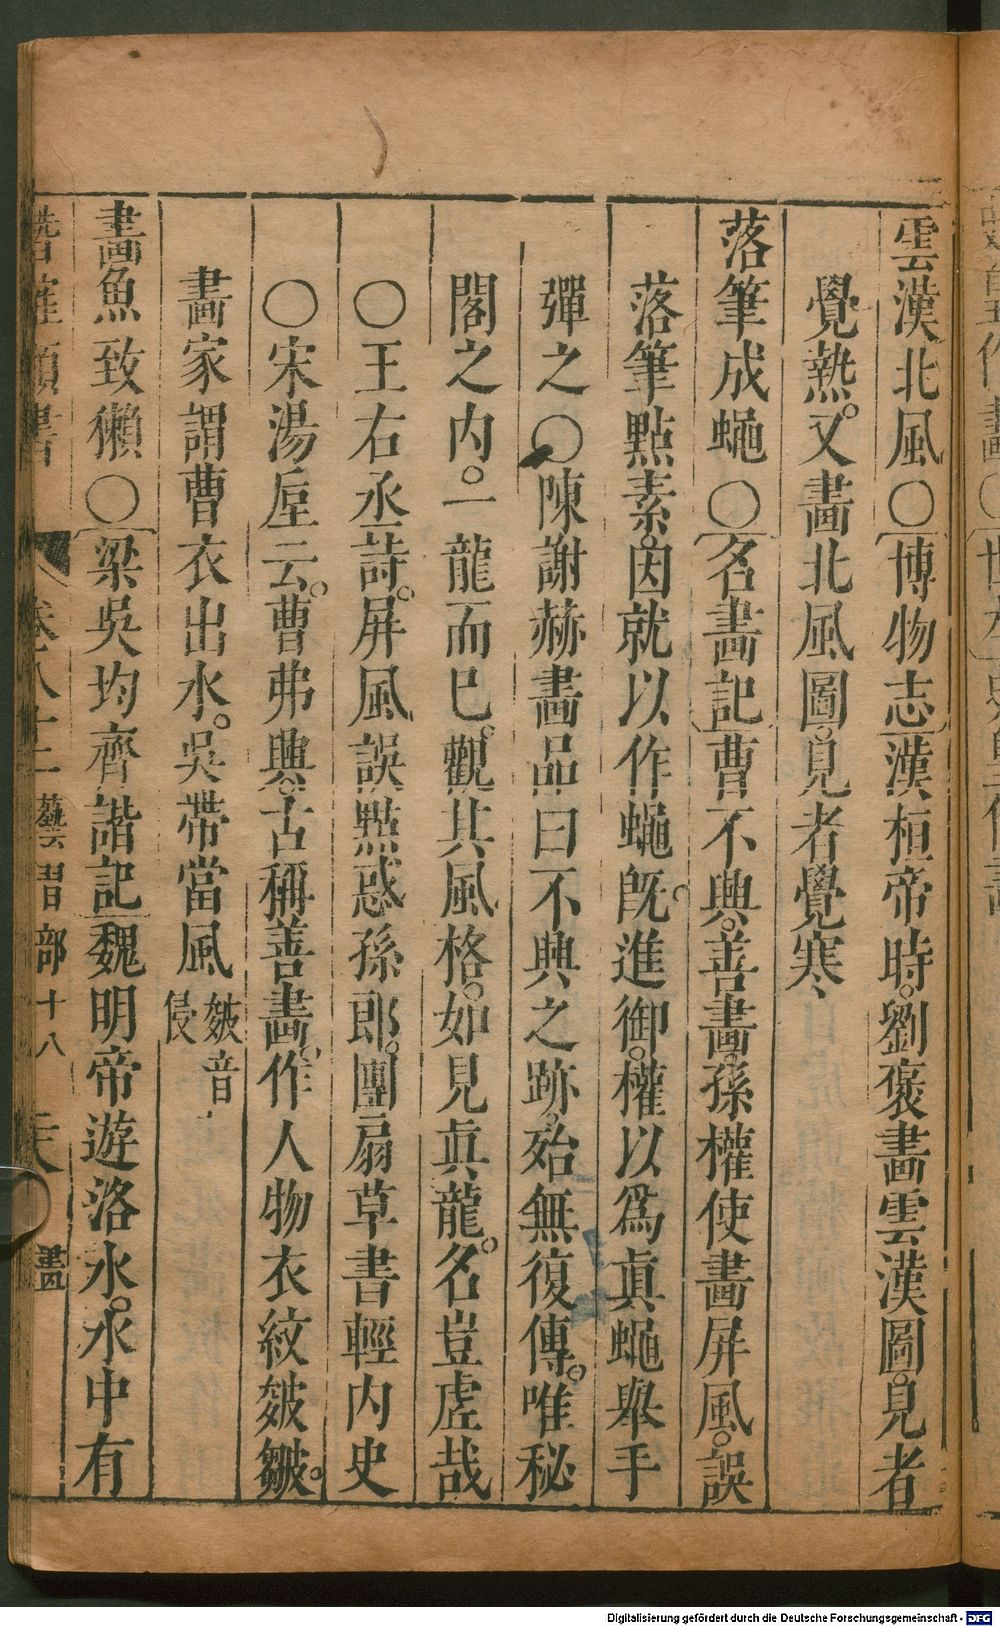 雲漢北風○博物志漢桓帝時。劉褒畫雲漢圖。見者
覺熱。又畫北風圖。見者覺寒
落筆成蠅○名畫記曹不興。善畫。孫權使畫屏風。誤
落筆點素。因就以作蠅。旣進御。權以爲眞蠅舉手
彈之○陳謝赫畫品曰不興之跡。殆無復傳。唯秘
閣之内。一龍而巳。觀其風格。如見眞龍。名豈虛哉
○王右丞詩。屏風誤點惑孫郎。團扇草書輕内史
○宋湯垕云。曹弗興。古稱善畫。作人物衣紋皴皺。
畫家謂曹衣出水。吳帶當風皴音侵
畫魚致獺○梁吳均齊諧記魏明帝遊洛水。水中有
卷八十二 藝習部十八 畫
Digitalisierung gefördert durch die Deutsche Forschungsgemeinschaft - DFG